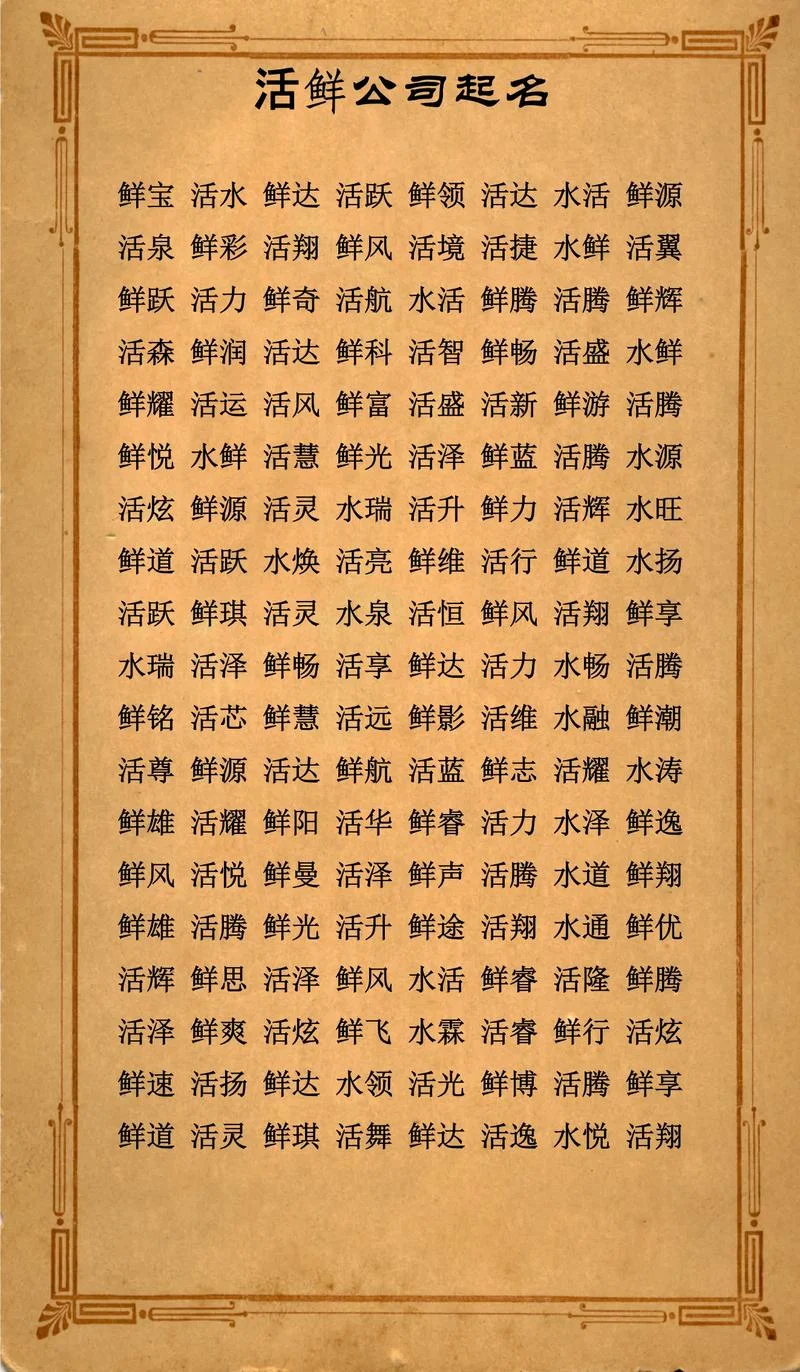 活鲜公司起名
鲜宝 活水 鲜达 活跃 鲜领 活达 水活 鲜源
活泉 鲜彩 活翔 鲜风 活境 活捷 水鲜 活翼
鲜跃 活力 鲜奇 活航 水活 鲜腾 活腾 鲜辉
活森 鲜润 活达 鲜科 活智 鲜畅 活盛 水鲜
鲜耀 活运 活风 鲜富 活盛 活新 鲜游 活腾
鲜悦 水鲜 活慧 鲜光 活泽 鲜蓝 活腾 水源
活炫 鲜源 活灵 水瑞 活升 鲜力 活辉 水旺
鲜道 活跃 水焕 活亮 鲜维 活行 鲜道 水扬
活跃 鲜琪 活灵 水泉 活恒 鲜风 活翔 鲜享
水瑞 活泽 鲜畅 活享 鲜达 活力 水畅 活腾
鲜铭 活芯 鲜慧 活远 鲜影 活维 水融 鲜潮
活尊 鲜源 活达 鲜航 活蓝 鲜志 活耀 水涛
鲜雄 活耀 鲜阳 活华 鲜睿 活力 水泽 鲜逸
鲜风 活悦 鲜曼 活泽 鲜声 活腾 水道 鲜翔
鲜雄 活腾 鲜光 活升 鲜途 活翔 水通 鲜优
活辉 鲜思 活泽 鲜风 水活 鲜睿 活隆 鲜腾
活泽 鲜爽 活炫 鲜飞 水霖 活睿 鲜行 活炫
鲜速 活扬 鲜达 水领 活光 鲜博 活腾 鲜享
鲜道 活灵 鲜琪 活舞 鲜达 活逸 水悦 活翔